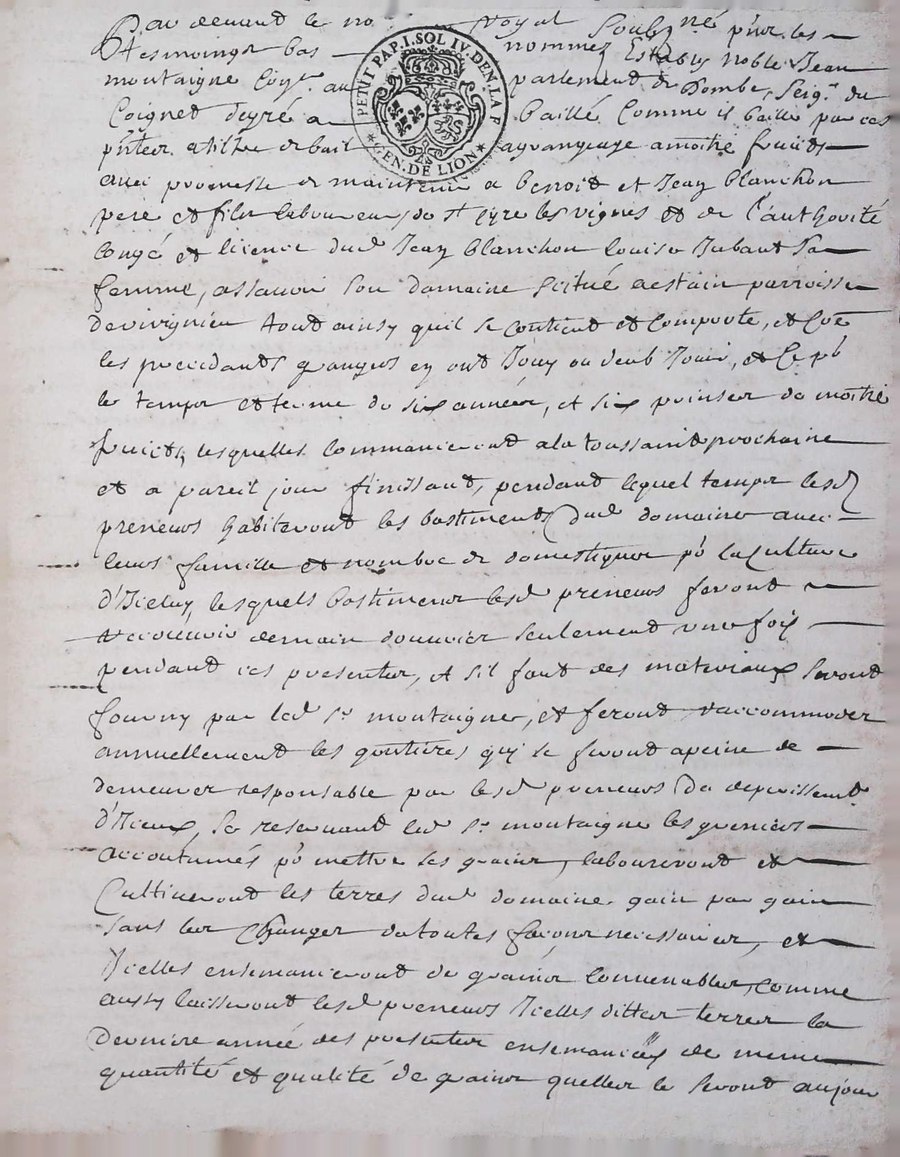 Par devant le no Royal Soubz.né p'nt les
tesmoings bas nommez Estably noble Jean
montaigne Con.er au parlement de Dombe, Seig.r du
Coignet de gré a baillé Comme il baille par ces
p'ntes a tiltre de bail a grangeage a moitié fruicts
avec promesse de maintenir a benoit et Jean blanchon
pere et fils laboureurs de St Cyre les vignes et de l'authorité
Congé et licence dud Jean blanchon louise sa
femme, assavoir Son domaine Scitué a estain parroisse
de vivignieu tout ainsy quil se Contient et Comporte, et Coe
les precedants grangers en ont Jouy ou deub Jouir, et Ce p'r
le temps et terme de six années, et six prinses de moitié
fruicts, lesquelles Commanceront a la toussaint prochaine
et a pareil jour finissant, pendant lequel temps lesd
preneurs habiteront les bastiments dud domaine avec
leurs famille et nombre de domestiques p'r la Culture
d'Iceluy, lesquels bastiments lesd preneurs feront
recouvrir de main douvrier seulement une fois
pendant ces presentes, et s'il faut des materiaux Seront
fourny par led Sr montaigne, et feront raccommoder
annuellement les goutieres qui se feront a peine de
demeurer responsable par lesd preneurs Du deperissement
d'Iceux, Se reservant led Sr montaigne les greniers
accoutumés p'r mettre ses grains, laboureront et
Cultiveront les terres dud domaine gain par gain
sans les Changer de toutes façons necessaires, et
Icelles ensemanceront de grains Convenables, Comme
aussy laisseront lesd preneurs Icelles dittes terres la
Derniere année des presentes ensemancées de meme
quantité et qualité de grains quelles le Seront au jour
PETIT PAP. I. SOL IV. DEN. LA F
GEN. DE LION